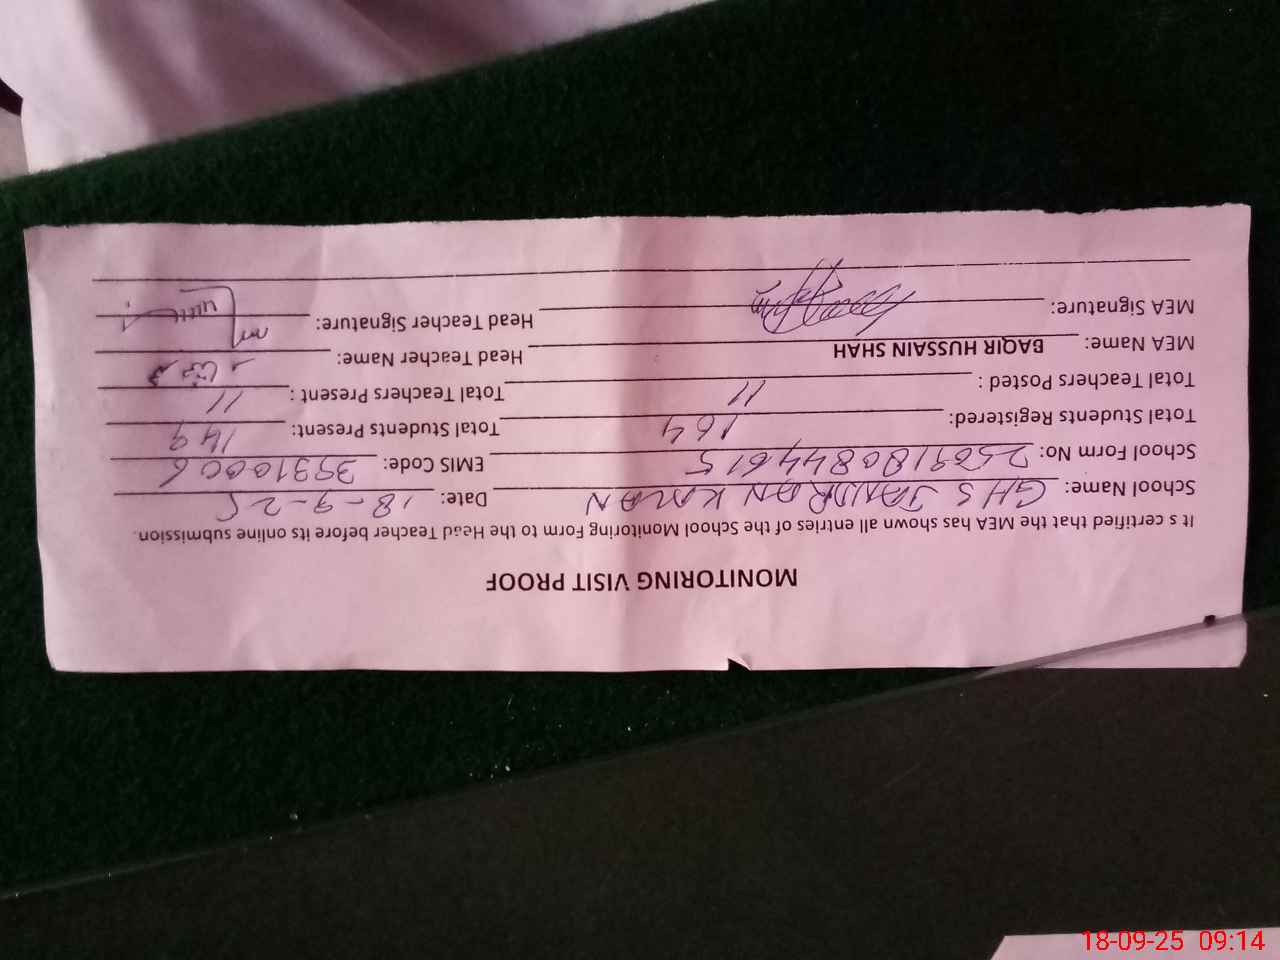 MONITORING VISIT PROOF
It s certified that the MEA has shown all entries of the School Monitoring Form to the Head Teacher before its online submission.
School Name: GHS JANDRAN KALAN Date: 18-9-25
School Form No: 2509180844615 EMIS Code: 39310006
Total Students Registered: 164 Total Students Present: 149
Total Teachers Posted: 11 Total Teachers Present: 11
MEA Name: BAQIR HUSSAIN SHAH Head Teacher Name:
MEA Signature: Head Teacher Signature:
18-09-25 09:14